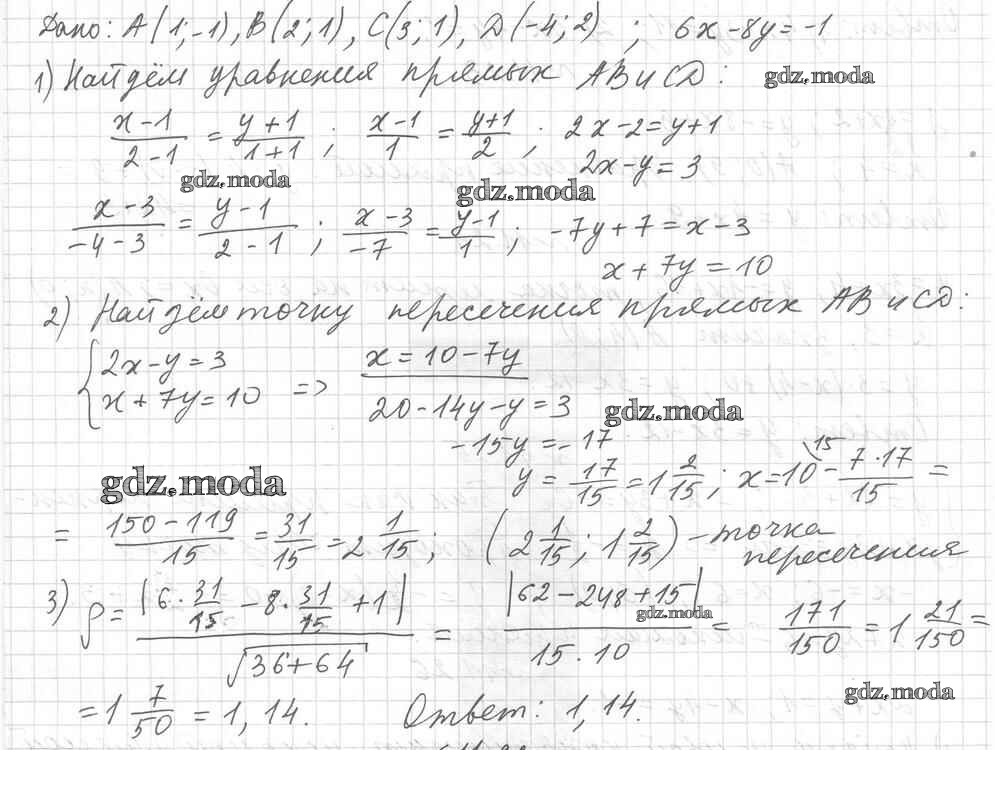 Дано: A(1;-1), B(2;1), C(3;1), D(-4;2) ; 6x-8y=-1
1) Найдём уравнения прямых AB и CD:
gdz.moda
(x-1)/(2-1) = (y+1)/(1+1) ; (x-1)/1 = (y+1)/2 ; 2x-2=y+1
2x-y=3
gdz.moda
gdz.moda
(x-3)/(-4-3) = (y-1)/(2-1) ; (x-3)/(-7) = (y-1)/1 ; -7y+7=x-3
x+7y=10
2) Найдём точку пересечения прямых AB и CD:
{2x-y=3
x+7y=10 => x=10-7y
20-14y-y=3
gdz.moda
-15y=-17
gdz.moda
y = 17/15 = 1 2/15 ; x=10\15 - (7·17)/15 =
= (150-119)/15 = 31/15 = 2 1/15 ; (2 1/15 ; 1 2/15) - точка
пересечения
3) ρ = |6·31/15 - 8·31/15 + 1| / √(36+64) = |62-248+15| / (15·10) = 171/150 = 1 21/150 =
gdz.moda
gdz.moda
= 1 7/50 = 1,14. Ответ: 1,14.